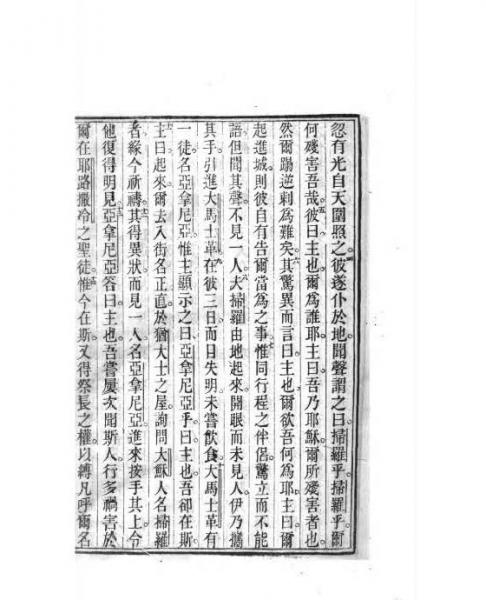 忽有光自天圍照之彼遂仆於地聞聲謂之曰掃羅乎掃羅乎爾
何殘害吾哉彼曰主也爾為誰耶主曰吾乃耶穌爾所殘害者也
然爾踢逆刺為難矣其驚異而言曰主也爾欲吾何為耶主曰爾
起進城則彼自有告爾當為之事惟同行程之伴侶驚立而不能
語但聞其聲不見一人夫掃羅由地起來開眼而未見人伊乃攜
其手引進大馬士革在彼三日而目失明未嘗飲食大馬士革有
一徒名亞拿尼亞惟主顯示之曰亞拿尼亞乎曰主也吾卻在斯
主曰起來爾去入街名正直於猶大士之屋詢問大穌人名掃羅
者緣今祈禱其得異狀而見一人名亞拿尼亞進來按手其上令
他復得明見亞拿尼亞答曰主也吾嘗屢次聞斯人行多禍害於
爾在耶路撒冷之聖徒惟今在斯又得祭長之權以縛凡呼爾名